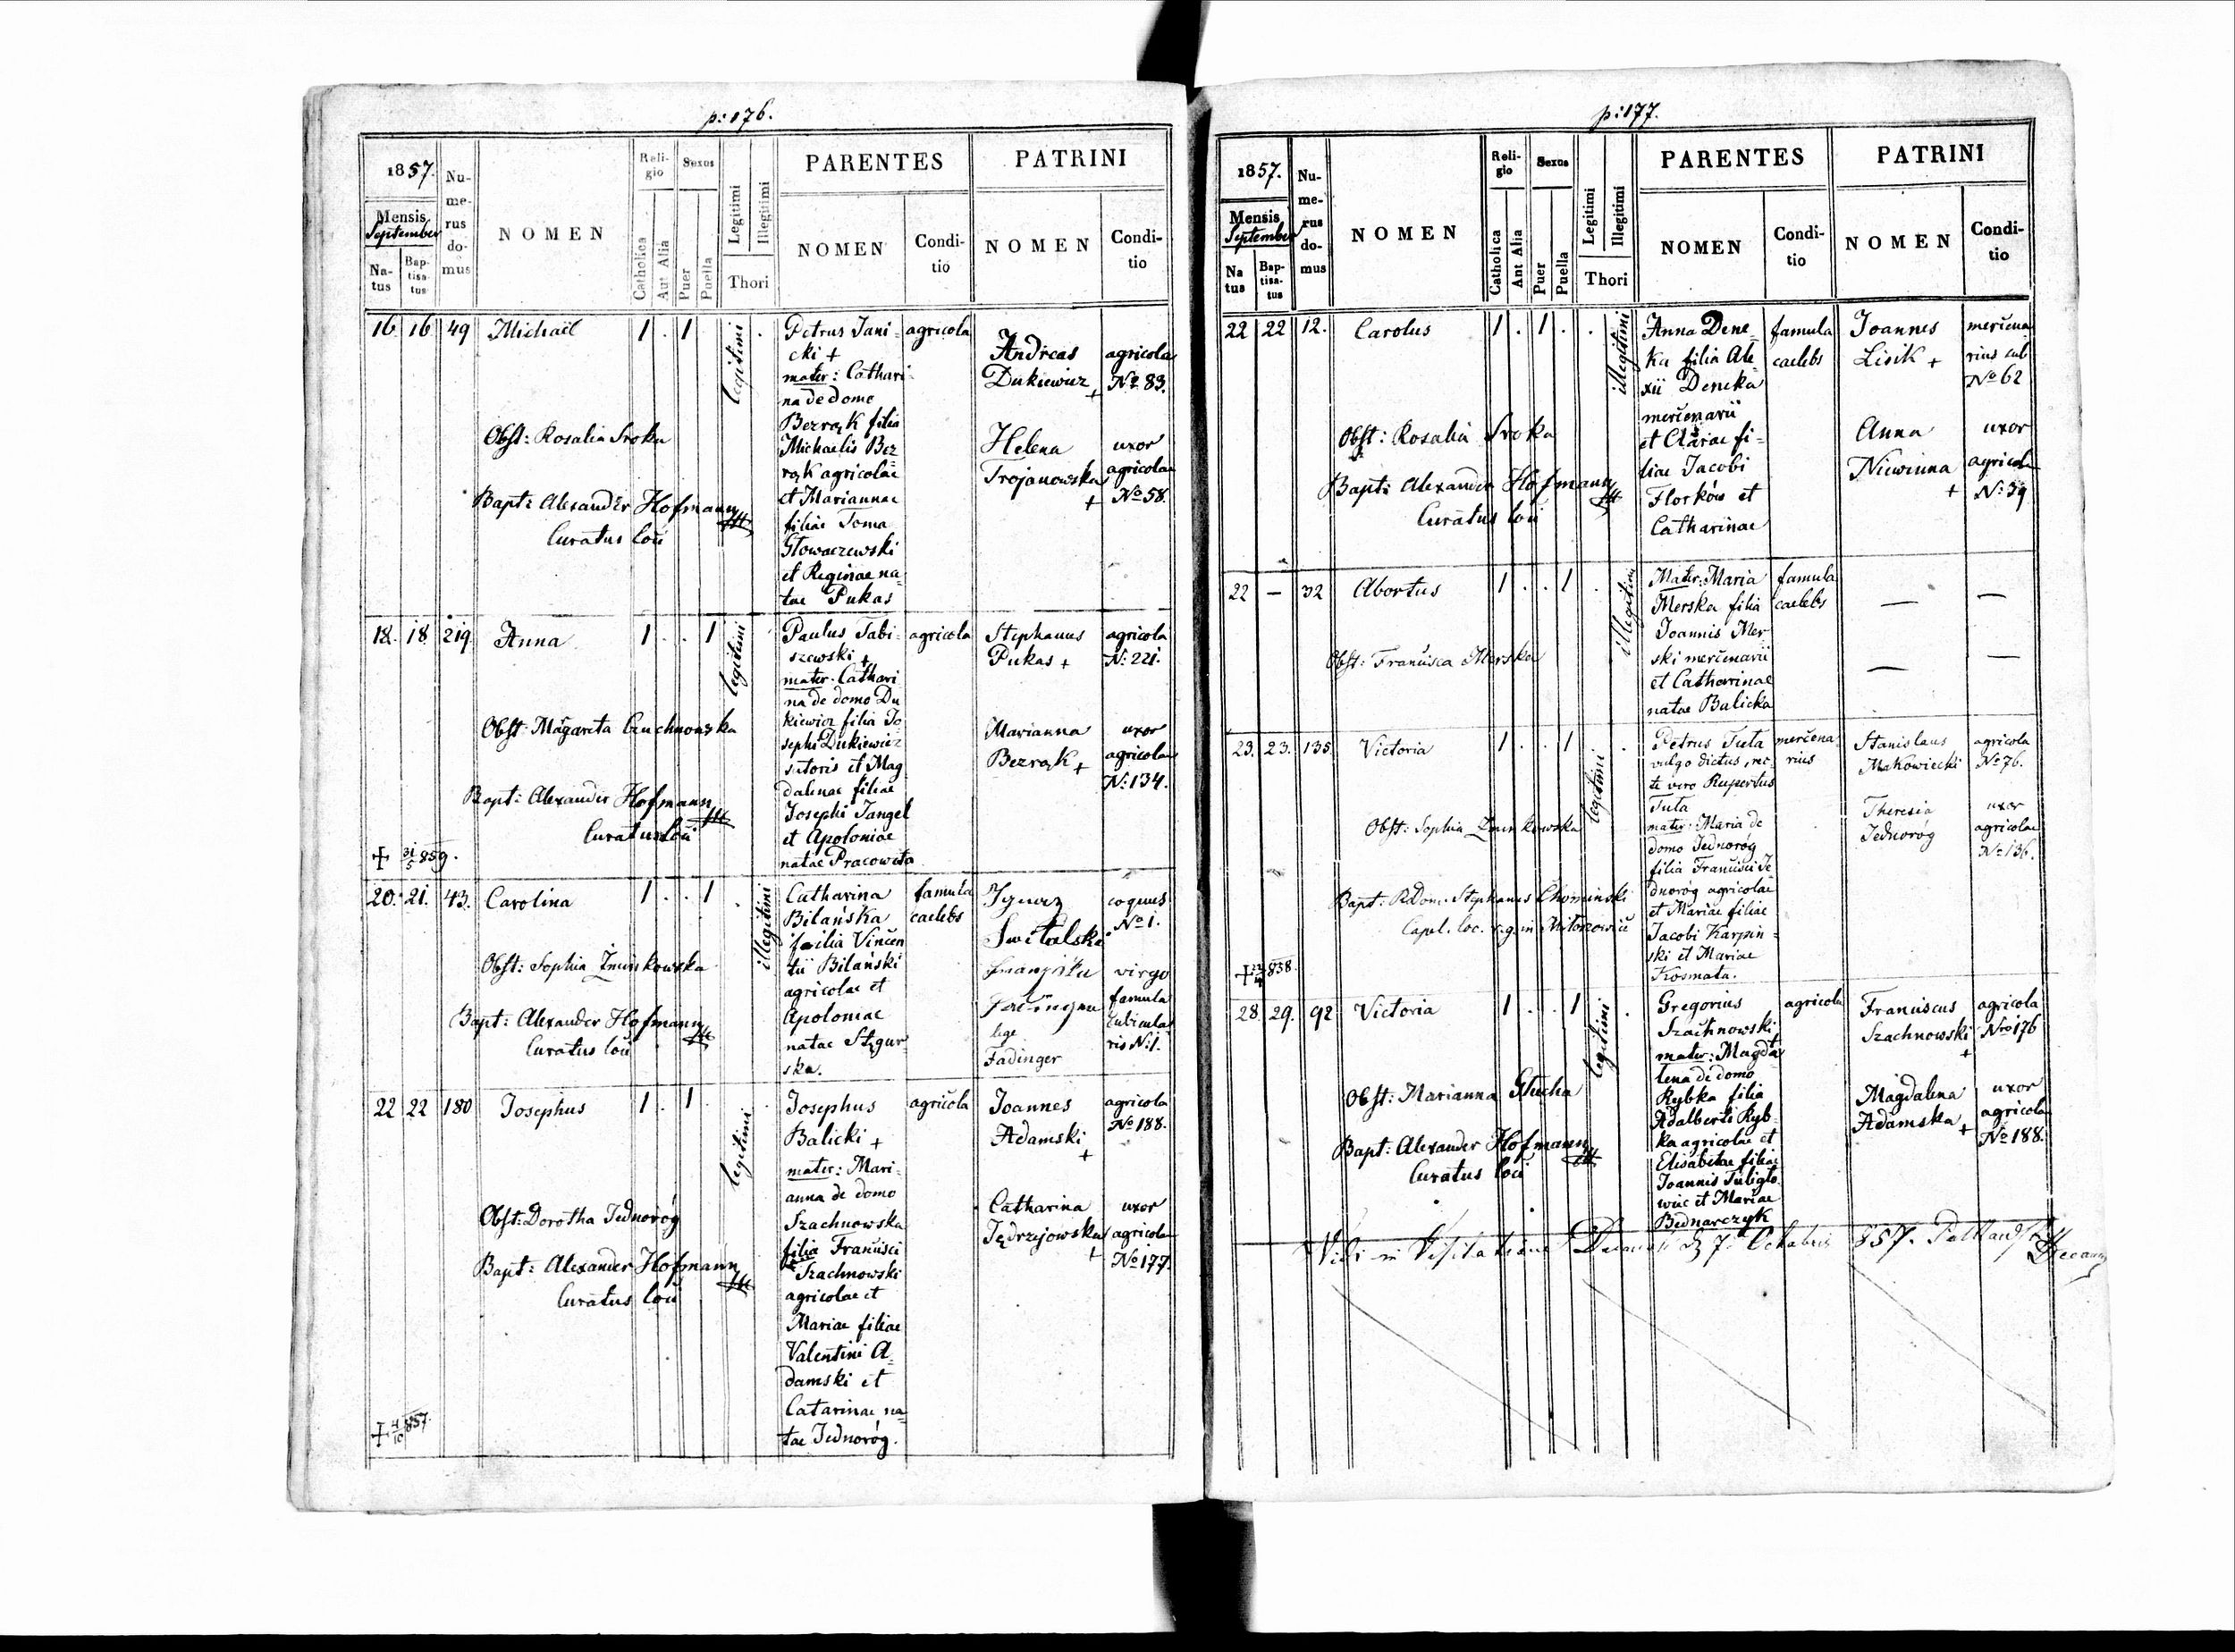 p: 176.
1857.
Mensis
September
Na-
tus
Bap-
tisa-
tus
Nu-
me-
rus
do-
mus
NOMEN
Reli-
gio
Catholica
Aut Alia
Sexus
Puer
Puella
Legitimi
Illegitimi
Thori
PARENTES
NOMEN
Condi-
tio
PATRINI
NOMEN
Condi-
tio
16 16 49 Michaël 1 . 1 .
legitimi
Obst: Rosalia Sroka
Bapt: Alexander Hofmann
Curatus loci
Petrus Jani-
cki +
mater: Cathari-
na de domo
Bezrąk filia
Michaelis Bez
rąk agricolae
et Mariannae
filiae Toma
Głowaczewski
et Reginae na-
tae Pukas
agricola
Andreas
Dukiewicz +
agricola
No 83.
Helena
Trojanowska +
uxor
agricolae
No 58.
18. 18 219 Anna 1 . . 1
legitimi
Obst: Margareta Cuchnowska
Bapt: Alexander Hofmann
Curatus loci
+ 31/5 859.
Paulus Tabi-
szewski +
mater: Cathari
na de domo Du
kiewicz filia Jo
sephi Dukiewicz
sutoris et Mag
dalenae filiae
Josephi Jangel
et Apoloniae
natae Pracowita
agricola
Stephanus
Pukas +
agricola
N: 221.
Marianna
Bezrąk +
uxor
agricolae
N: 134.
20. 21. 43. Carolina 1 . . 1 .
illegitimi
Obst: Sophia Żminkowska
Bapt: Alexander Hofmann
Curatus loci
Catharina
Bilańska
filia Vincen
tii Bilański
agricolae et
Apoloniae
natae Stęgur-
ska.
famula
caelebs
Ignacz
Switalski
coquus
No 1.
lege
Fadinger
virgo
famula
cubicula
ris N: 1.
22 22 180 Josephus 1 . 1 . .
legitimi
Obst: Dorotha Jednoróg
Bapt: Alexander Hofmann
Curatus loci
+ 4/10 857.
Josephus
Balicki +
mater: Mari-
anna de domo
Szachnowska
filia Francisci
Szachnowski
agricolae et
Mariae filiae
Valentini A-
damski et
Catarinae na-
tae Jednoróg.
agricola
Joannes
Adamski +
agricola
No 188.
Catharina
Jędrzejowska +
uxor
agricolae
No 177.
p: 177.
1857.
Mensis
September
Na
tus
Bap-
tisa-
tus
Nu-
me-
rus
do-
mus
NOMEN
Reli-
gio
Catholica
Aut Alia
Sexus
Puer
Puella
Legitimi
Illegitimi
Thori
PARENTES
NOMEN
Condi-
tio
PATRINI
NOMEN
Condi-
tio
22 22 12. Carolus 1 . 1 . .
illegitimi
Obst: Rosalia Sroka
Bapt: Alexander Hofmann
Curatus loci
Anna Dene-
ka filia Ale-
xii Deneka
mercenarii
et Clarae fi-
liae Jacobi
Florków et
Catharinae
famula
caelebs
Joannes
Lisik +
mercena
rius sub
No 62
Anna
Niewinna +
uxor
agricolae
N: 39
22 — 32 Abortus 1 . . 1 .
illegitimi
Obst: Francisca Merska
Mater: Maria
Merska filia
Joannis Mer-
ski mercenarii
et Catharinae
natae Balicka
famula
caelebs
— —
— —
23. 23. 135 Victoria 1 . . 1 .
legitimi
Obst: Sophia Żminkowska
Bapt: RDom. Stephanus Chominski
Capel. loc. r. g. in
Petrus Tuta
vulgo dictus, rec-
te vero Rupertus
Tuta
mater: Maria de
domo Jednoróg
filia Francisci Je
dnoróg agricolae
et Mariae filiae
Jacobi Karpin-
ski et Mariae
Kosmata.
mercena
rius
Stanislaus
Makowiecki
agricola
No 76.
Theresia
Jednoróg
uxor
agricolae
No 136.
28 29. 92 Victoria 1 . . 1 .
legitimi
Obst: Marianna Głucha
Bapt: Alexander Hofmann
Curatus loci
Gregorius
Szachnowski +
mater: Magda
lena de domo
Rybka filia
Adalberti Ryb-
ka agricolae et
Elisabetae filiae
Joannis Tuligło
wiec et Mariae
Bednarczyk
agricola
Franciscus
Szachnowski +
agricola
Nro 176
Magdalena
Adamska +
uxor
agricolae
No 188.
Vidi in Visitatione Decanali d 7 Octobris 857.
Decanus